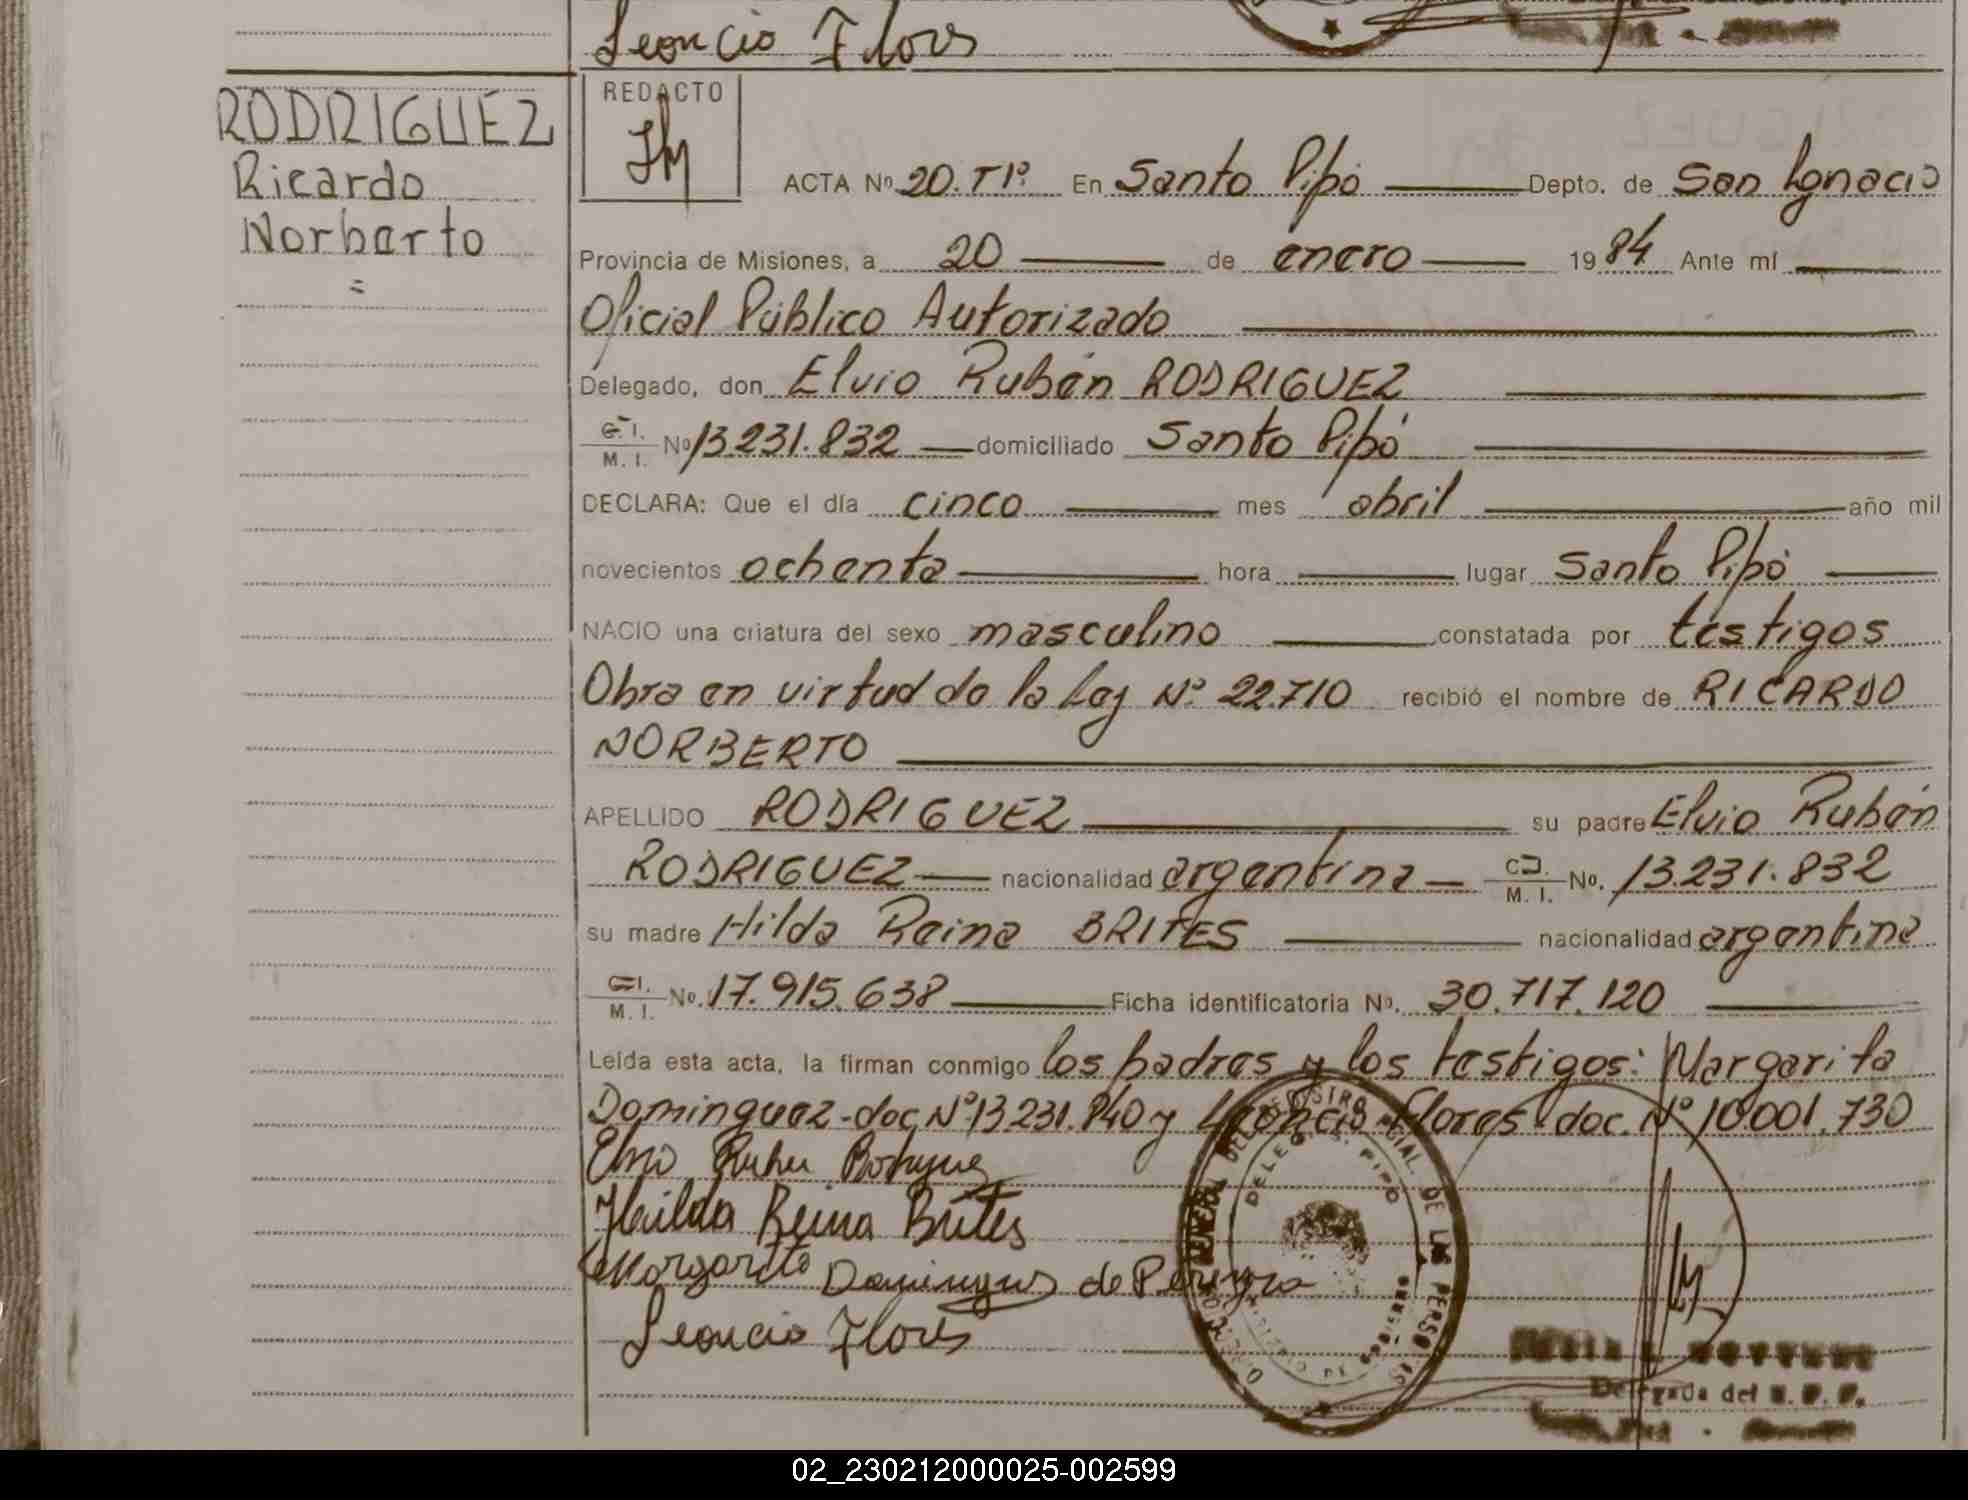 Leoncio Flores
RODRIGUEZ
Ricardo
Norberto
=
REDACTO
ACTA Nº 20. Tº 1º En Santo Pipó Depto. de San Ignacio
Provincia de Misiones, a 20 de enero 1984 Ante mí
Oficial Público Autorizado
Delegado, don Elvio Rubén RODRIGUEZ
C. I. M. I. Nº 13.231.832 domiciliado Santo Pipó
DECLARA: Que el día cinco mes abril año mil
novecientos ochenta hora lugar Santo Pipó
NACIO una criatura del sexo masculino constatada por testigos
Obra en virtud de la Ley Nº 22.710 recibió el nombre de RICARDO
NORBERTO
APELLIDO RODRIGUEZ su padre Elvio Rubén
RODRIGUEZ nacionalidad argentina C.I. M. I. No. 13.231.832
su madre Hilda Reina BRITES nacionalidad argentina
C.I. M. I. No. 17.915.638 Ficha identificatoria Nº. 30.717.120
Leída esta acta, la firman conmigo los padres y los testigos: Margarita
Dominguez-doc. Nº 13.231.840 y Leoncio Flores-doc. Nº 10.001.730
Hilda Reina Brites
Margarita Dominguez de Pereyra
Leoncio Flores
Delegada del R. P. P.
02_230212000025-002599